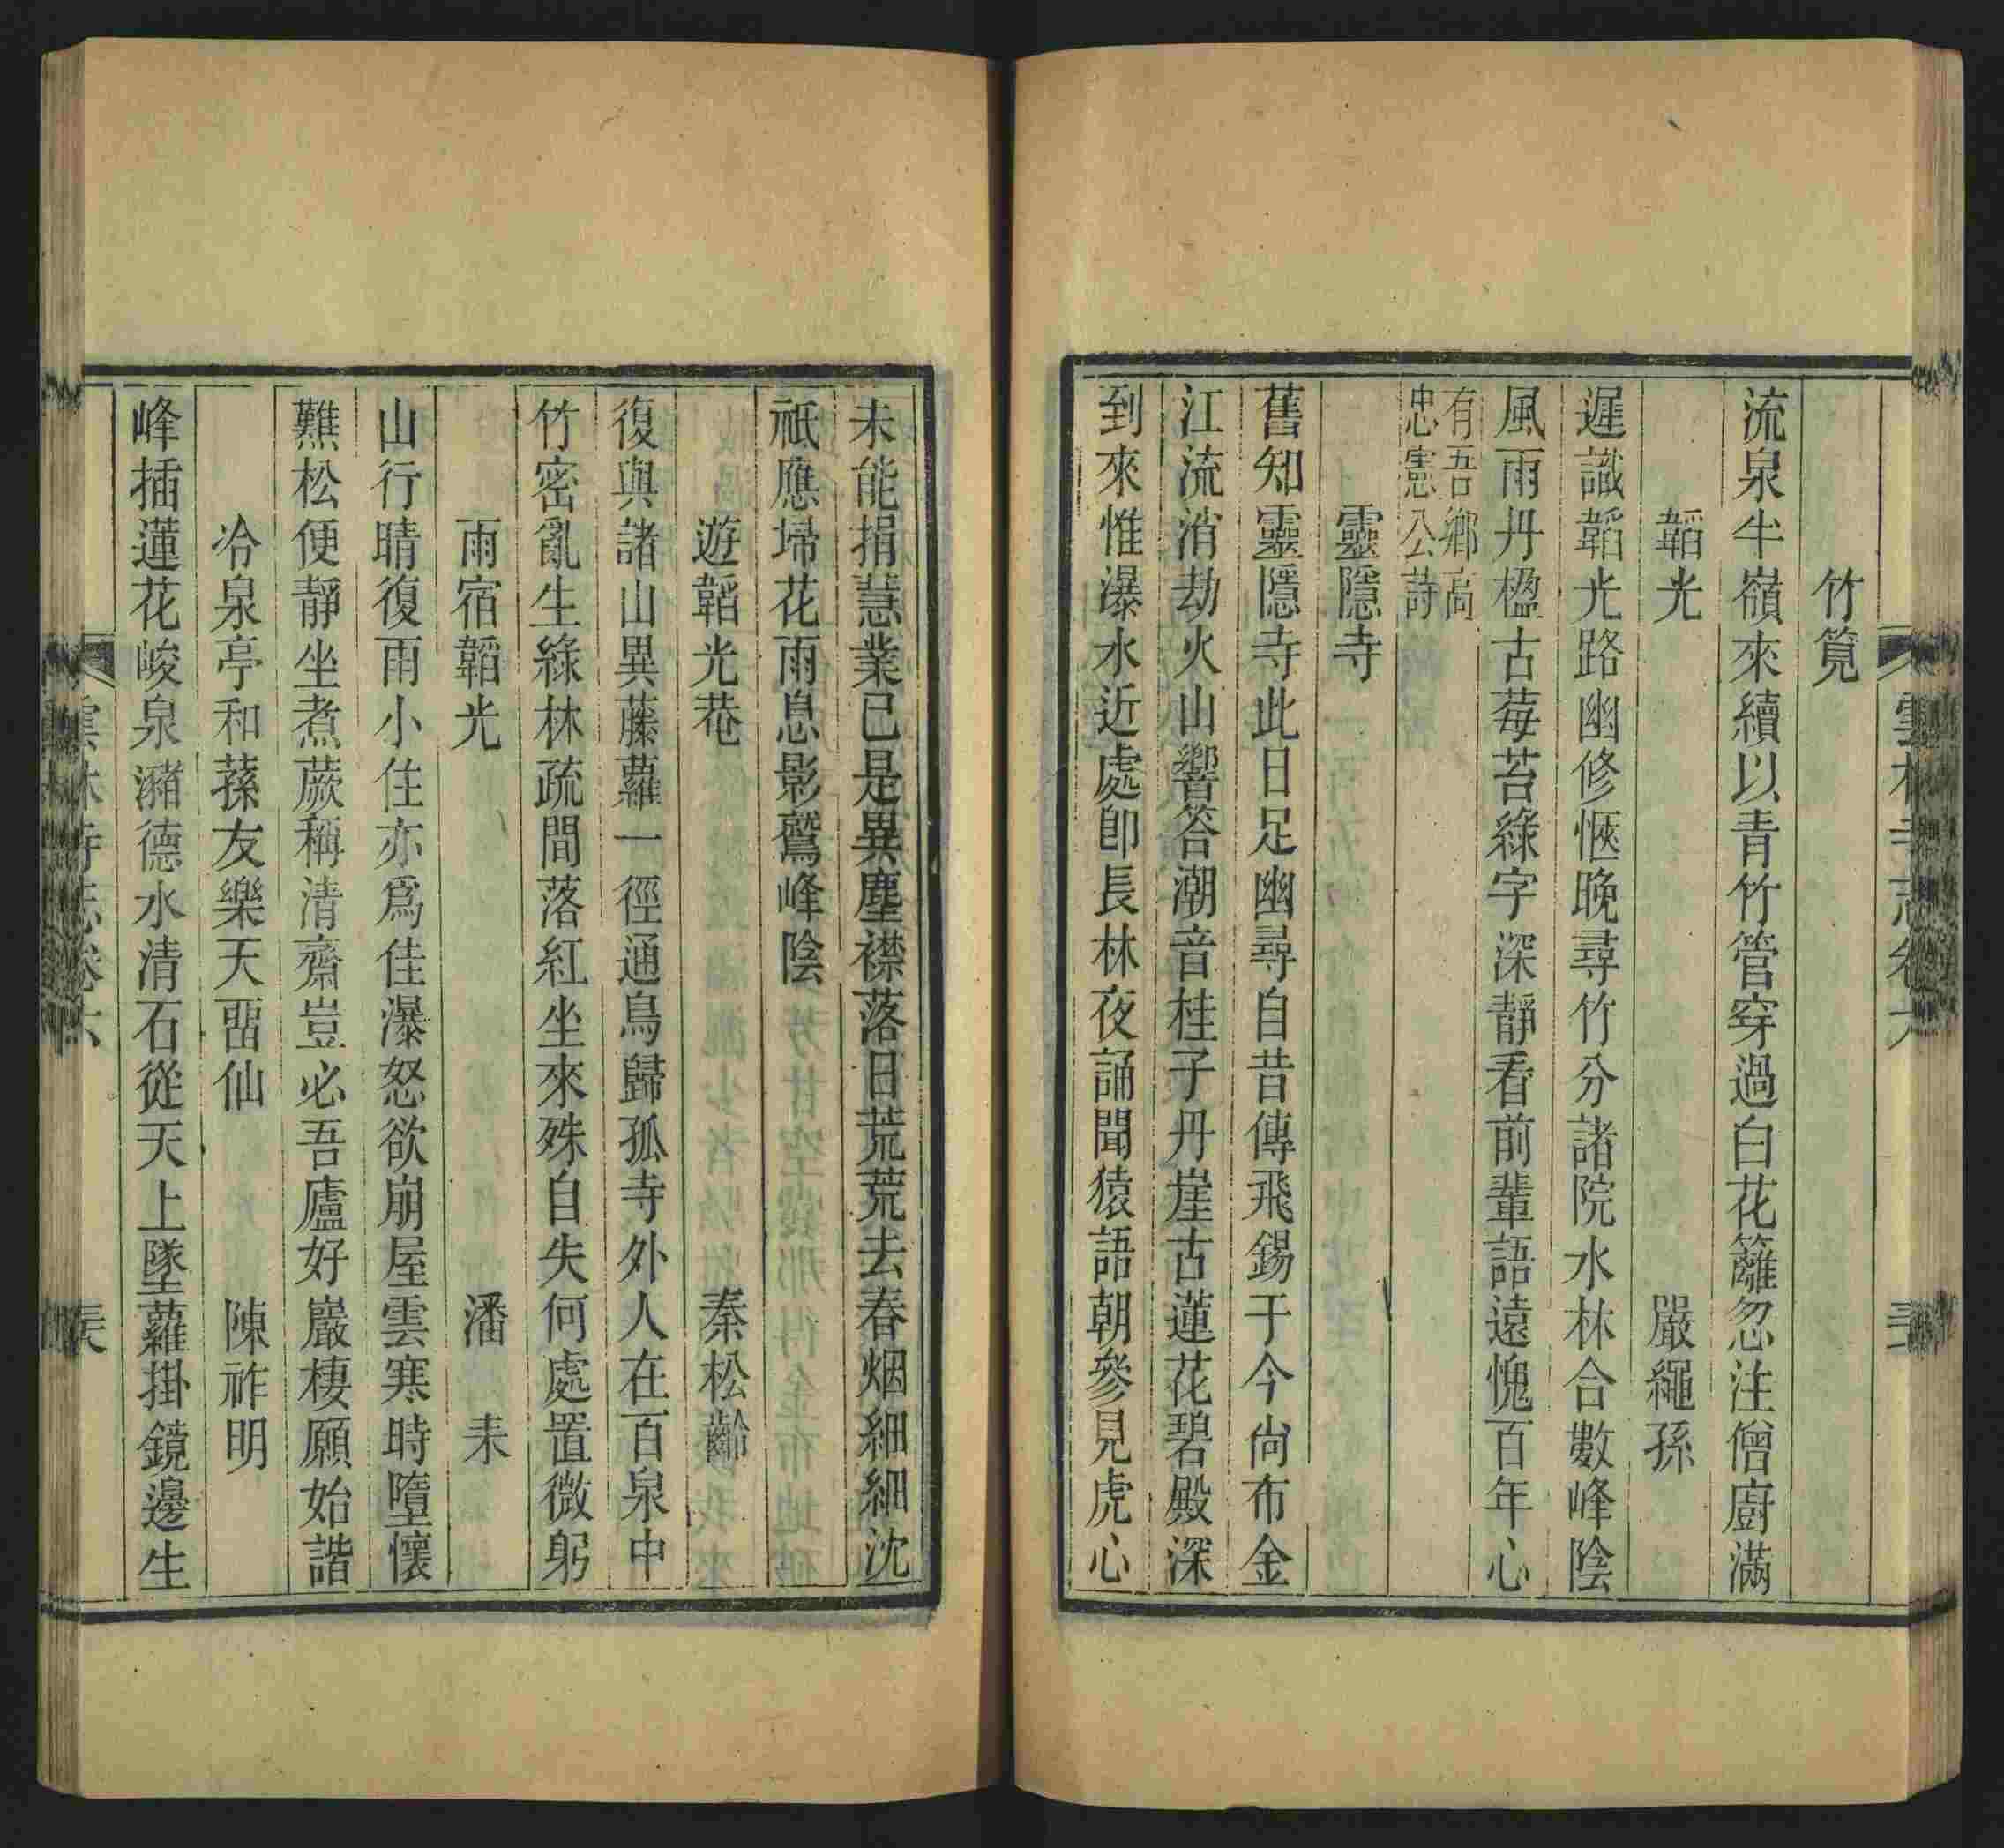 竹筧
流泉半嶺來續以青竹管穿過白花籬忽注僧廚滿
韜光 嚴繩孫
遲識韜光路幽修愜晚尋竹分諸院水林合數峰陰
風雨丹楹古莓苔綠字深靜看前輩語遠愧百年心
有吾鄉高
忠憲公詩
靈隱寺
舊知靈隱寺此日足幽尋自昔傳飛錫于今尙布金
江流消劫火山響答潮音桂子丹崖古蓮花碧殿深
到來惟瀑水近處卽長林夜誦聞猿語朝參見虎心
未能捐慧業已是異塵襟落日荒荒去春烟細細沈
祇應埽花雨息影鷲峰陰
遊韜光菴 秦松齡
復與諸山異藤蘿一徑通鳥歸孤寺外人在百泉中
竹密亂生綠林疏間落紅坐來殊自失何處置微躬
雨宿韜光 潘耒
山行晴復雨小住亦爲佳瀑怒欲崩屋雲寒時墮懷
爇松便靜坐煮蕨稱清齋豈必吾廬好巖棲願始諧
冷泉亭和蓀友樂天畱仙 陳祚明
峰插蓮花峻泉瀦德水清石從天上墜蘿掛鏡邊生
雲林寺志卷六